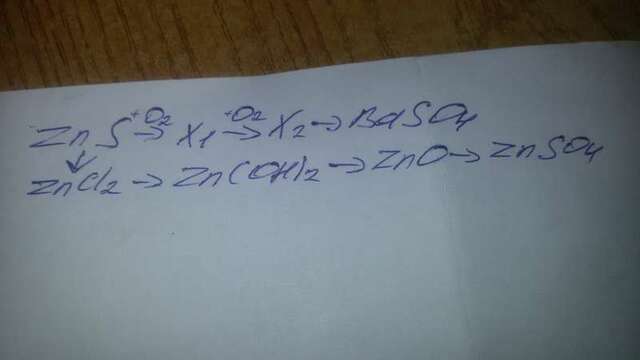 ZnS +O2→ X1 +O2→ X2 → BaSO4
↓
ZnCl2 → Zn(OH)2 → ZnO → ZnSO4